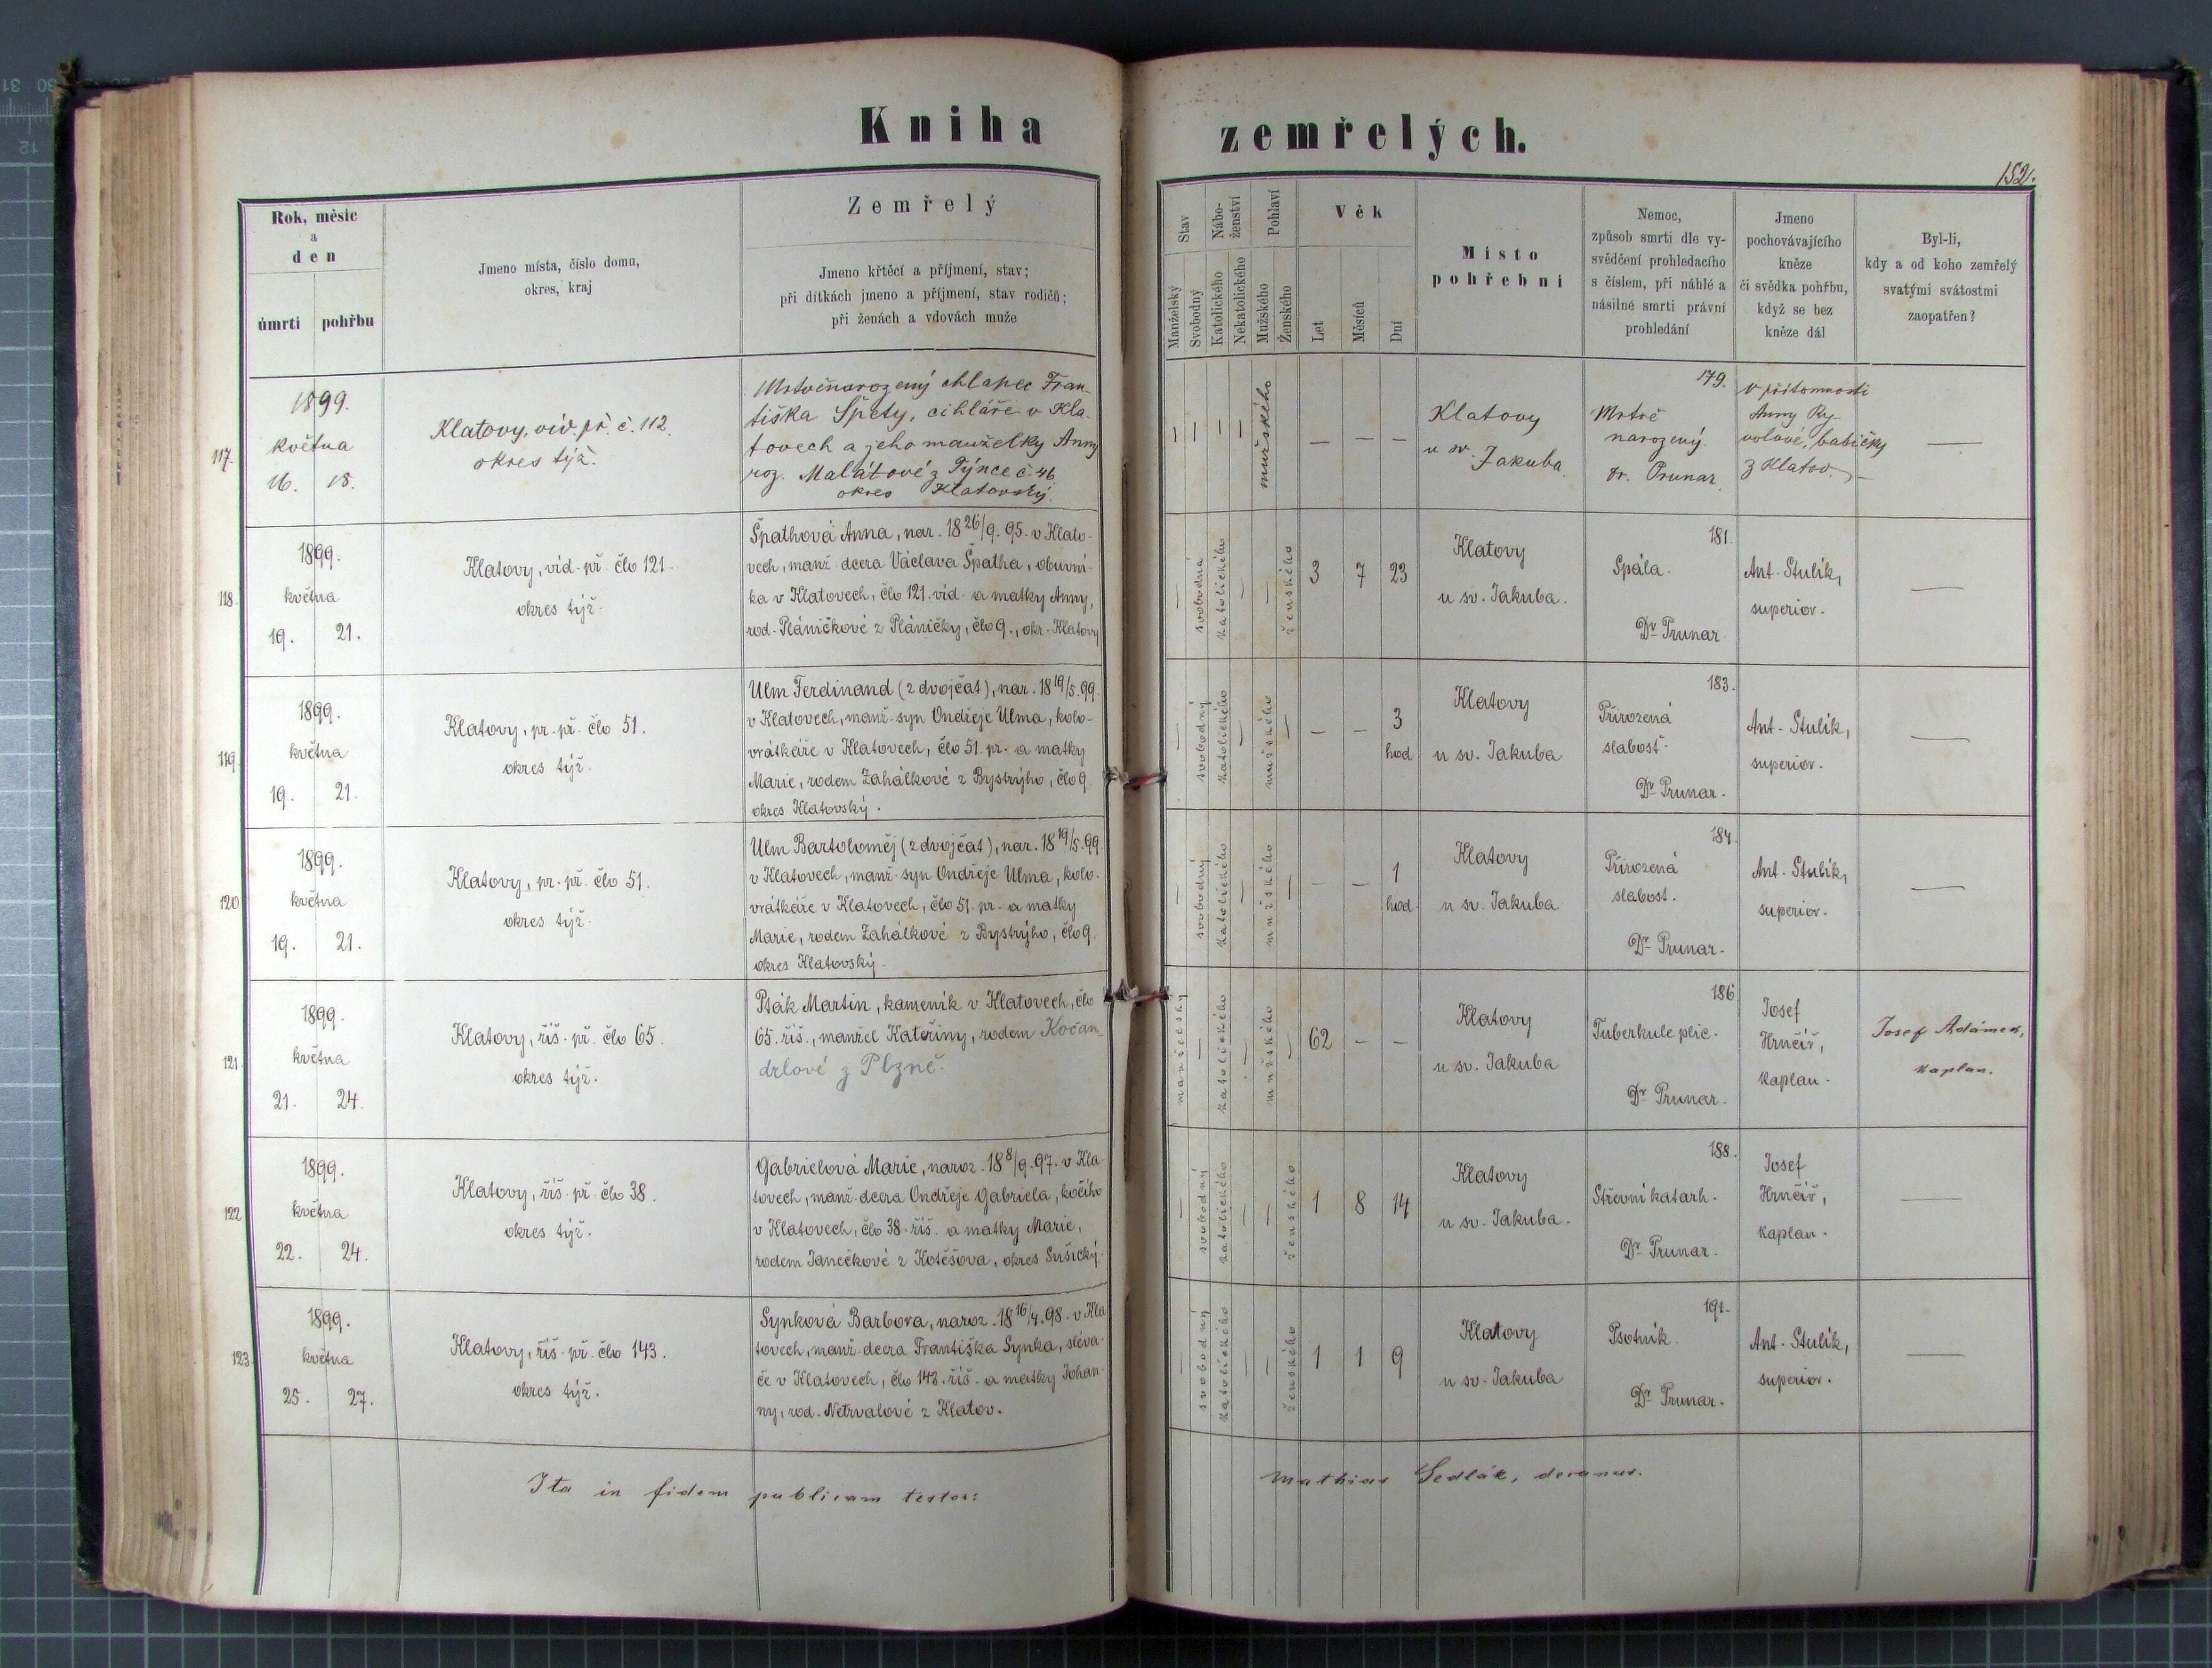 Kniha zemřelých.
152.
Rok, měsíc
a
den
úmrtí pohřbu
Jmeno místa, číslo domu,
okres, kraj
Zemřelý
Jmeno křtěcí a příjmení, stav;
při dítkách jmeno a příjmení, stav rodičů;
při ženách a vdovách muže
Stav
Manželský
Svobodný
Nábo-
ženství
Katolického
Nekatolického
Pohlaví
Mužského
Ženského
Věk
Let
Měsíců
Dní
Místo
pohřební
Nemoc,
způsob smrti dle vy-
svědčení prohledacího
s číslem, při náhlé a
násilné smrti právní
prohledání
Jmeno
pochovávajícího
kněze
či svědka pohřbu,
když se bez
kněze dál
Byl-li,
kdy a od koho zemřelý
svatými svátostmi
zaopatřen?
117.
1899.
května
16. 18.
Klatovy, víd. př. č. 112.
okres týž.
Mrtvěnarozený chlapec Fran-
tiška Špety, cihláře v Kla-
tovech a jeho manželky Anny
roz. Malátové z Týnce č. 46
okres Klatovský.
— — — — mužského
— — —
Klatovy
u sv. Jakuba.
179.
Mrtvě
narozený.
Dr. Prunar.
V přítomnosti
Anny Ry-
volové, babičky
z Klatov.
—
118.
1899.
května
19. 21.
Klatovy, víd. př. člo 121.
okres týž.
Špathová Anna, nar. 18 26/9. 95. v Klato-
vech, manž. dcera Václava Špatha, obuvní-
ka v Klatovech, člo 121. víd. a matky Anny,
rod. Pláničkové z Pláničky, člo 9., okr. Klatovy
— svobodná katolického — — ženského
3 7 23
Klatovy
u sv. Jakuba.
181.
Spála.
Dr. Prunar
Ant. Stulík,
superior.
—
119.
1899.
května
19. 21.
Klatovy, pr. př. člo 51.
okres týž.
Ulm Ferdinand (z dvojčat), nar. 18 19/5. 99.
v Klatovech, manž. syn Ondřeje Ulma, kolo-
vrátkáře v Klatovech, člo 51. pr. a matky
Marie, rodem Zahálkové z Bystrýho, člo 9
okres Klatovský.
— svobodný katolického — mužského —
— — 3
hod
Klatovy
u sv. Jakuba
183.
Přirozená
slabosť.
Dr. Prunar.
Ant. Stulík,
superior.
—
120
1899.
května
19. 21.
Klatovy, pr. př. člo 51.
okres týž.
Ulm Bartoloměj (z dvojčat), nar. 18 19/5. 99.
v Klatovech, manž. syn Ondřeje Ulma, kolo-
vrátkáře v Klatovech, člo 51. pr. a matky
Marie, rodem Zahálkové z Bystrýho, člo 9.
okres Klatovský.
— svobodný katolického — mužského —
— — 1
hod
Klatovy
u sv. Jakuba
184.
Přirozená
slabost.
Dr. Prunar.
Ant. Stulík,
superior.
—
121.
1899.
května
21. 24.
Klatovy, říš. př. člo 65.
okres týž.
Pták Martin, kameník v Klatovech, člo
65. říš., manžel Kateřiny, rodem Kočan-
drlové z Plzně.
manželský — katolického — mužského —
62 — —
Klatovy
u sv. Jakuba
186
Tuberkule plic.
Dr. Prunar.
Josef
Hrnčíř,
kaplan.
Josef Adámek,
kaplan.
122
1899.
května
22. 24.
Klatovy, říš. př. člo 38.
okres týž.
Gabrielová Marie, naroz. 18 8/9. 97. v Kla-
tovech, manž. dcera Ondřeje Gabriela, kočího
v Klatovech, člo 38. říš. a matky Marie,
rodem Janečkové z Kotěšova, okres Sušický.
— svobodný katolického — — ženského
1 8 14
Klatovy
u sv. Jakuba.
188.
Střevní katarh.
Dr. Prunar.
Josef
Hrnčíř,
kaplan.
—
123.
1899.
května
25. 27.
Klatovy, říš. př. člo 143.
okres týž.
Synková Barbora, naroz. 18 16/4. 98. v Kla
tovech, manž. dcera Františka Synka, sléva-
če v Klatovech, člo 143. říš. a matky Johan-
ny, rod. Netrvalové z Klatov.
— svobodný katolického — — ženského
1 1 9
Klatovy
u sv. Jakuba
191.
Psotník.
Dr. Prunar.
Ant. Stulík,
superior.
—
Ita in fidem publicam testor: Mathias Sedlák, decanus.